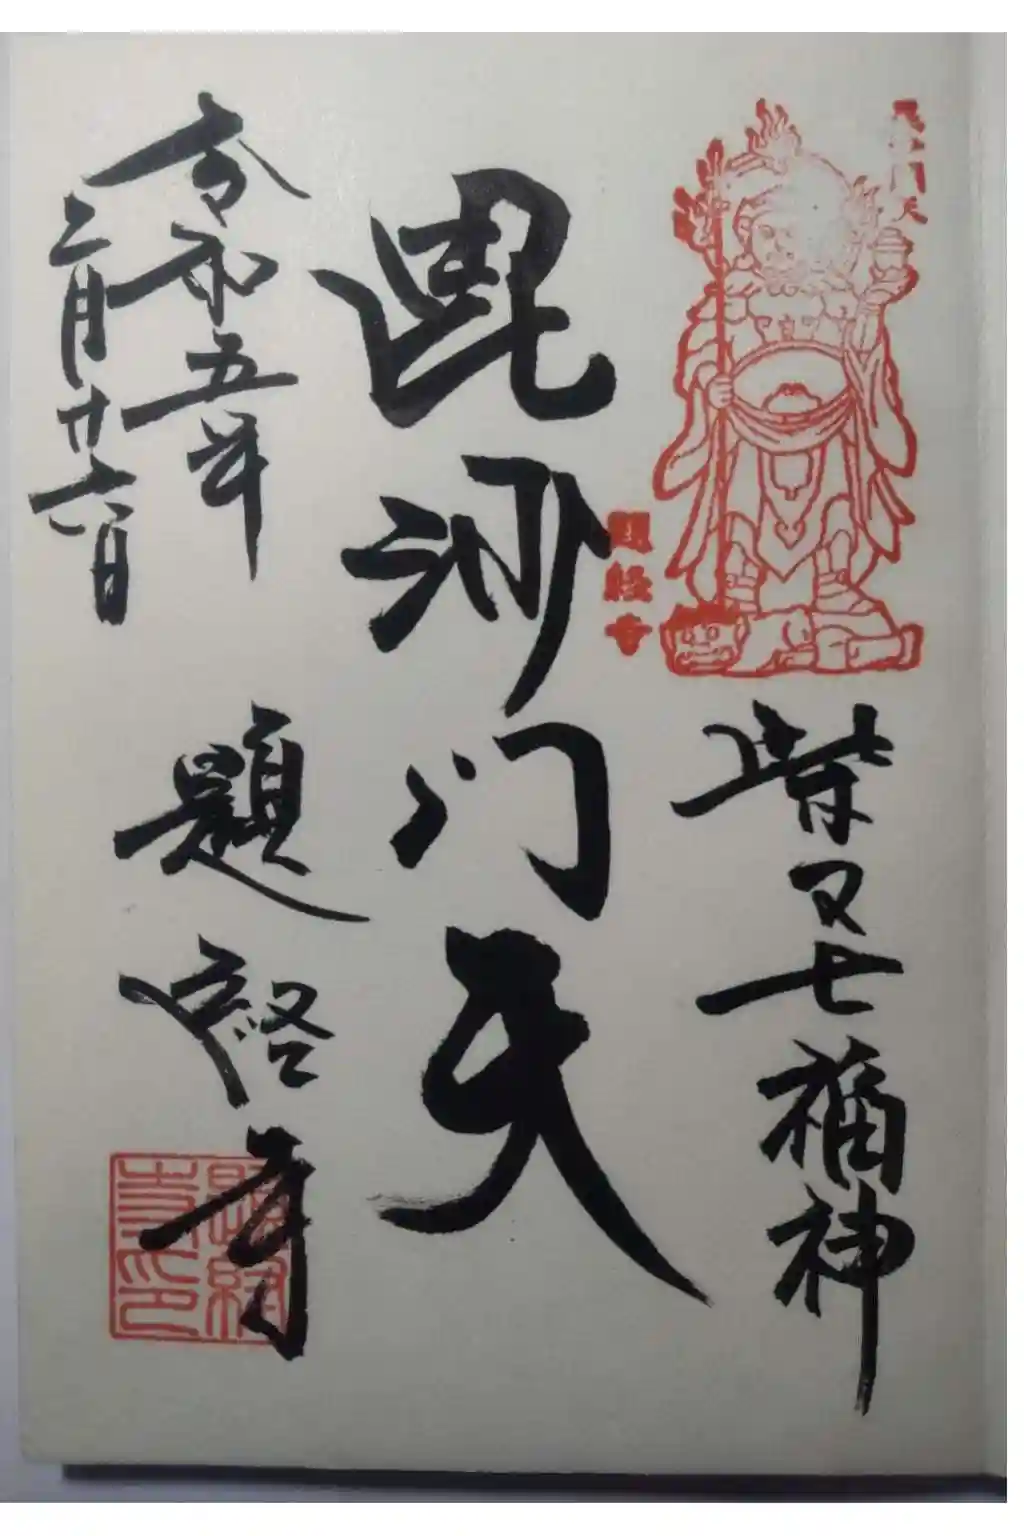 毘沙門天
柴又七福神
毘沙門天
題経寺
令和五年
二月廿六日
題経寺
題経寺印